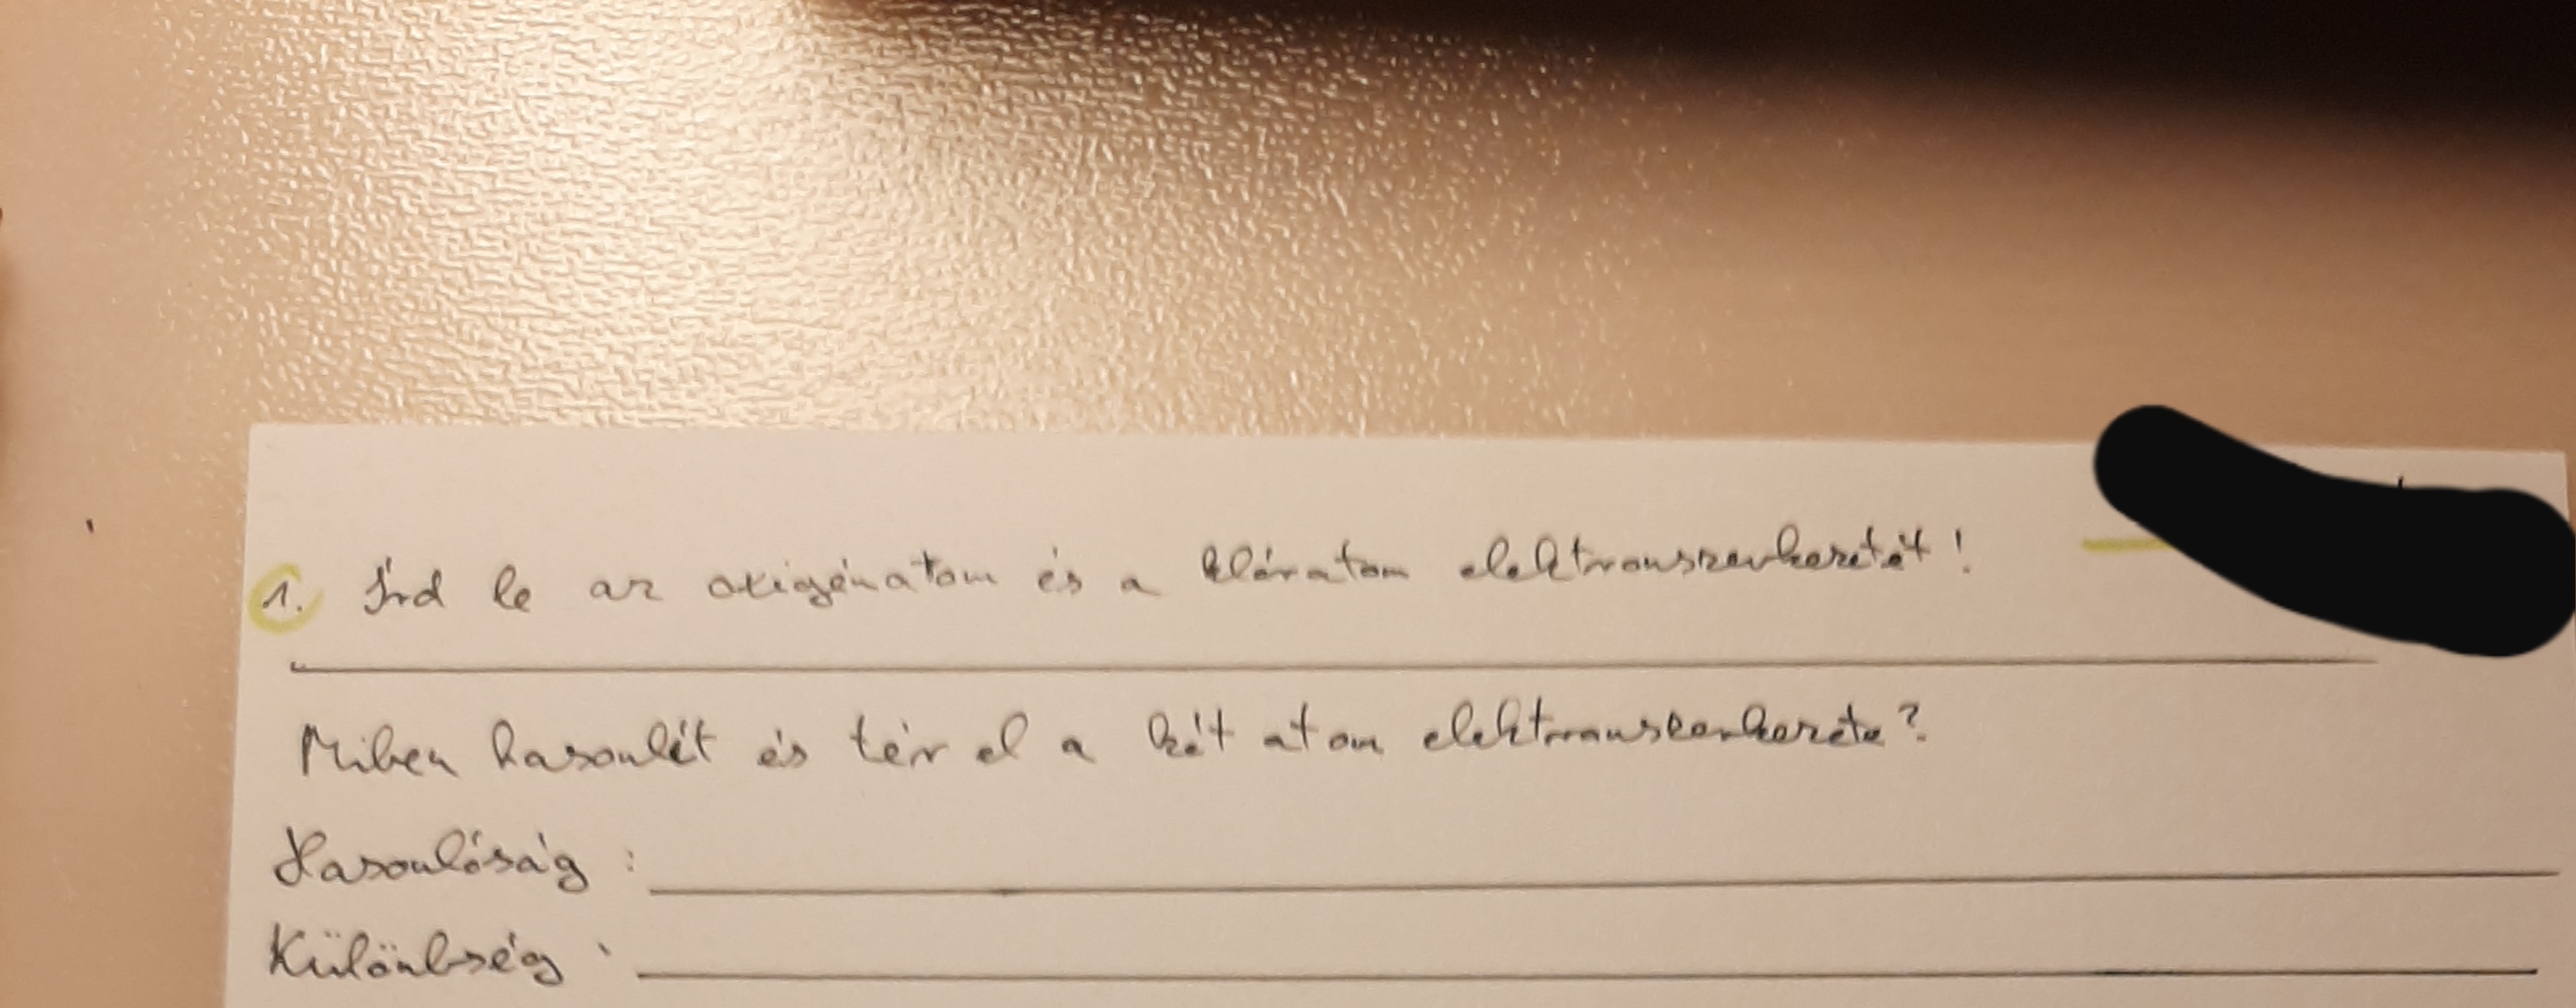 1. Írd le az oxigénatom és a klóratom elektronszerkezetét!
Miben hasonlít és tér el a két atom elektronszerkezete?
Hasonlóság:
Különbség: